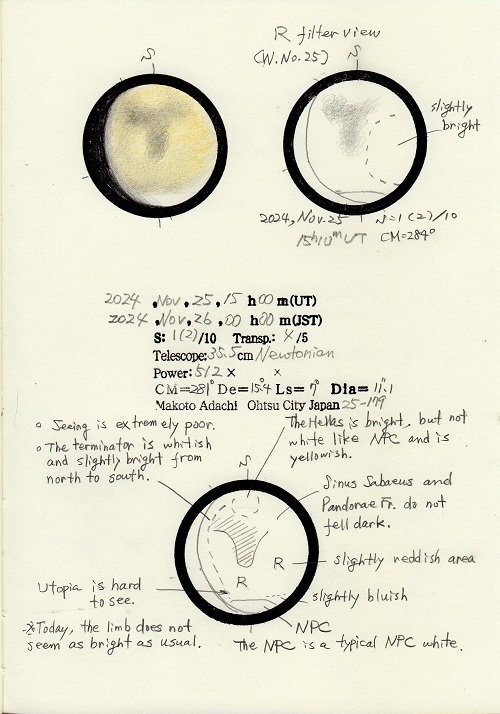 R filter view
(W.No.25)
S
S
slightly
bright
2024, Nov. 25 S=1(2)/10
15h10m UT CM=284°
2024 , Nov , 25 , 15 h 00 m (UT)
2024 , Nov , 26 , 00 h 00 m (JST)
S: 1(2)/10 Transp.: 4/5
Telescope: 35.5cm Newtonian
Power: 512 × ×
CM=281° De=15.4° Ls=7° Dia=11".1
Makoto Adachi Ohtsu City Japan 25-179
○ Seeing is extremely poor.
○ The terminator is whitish
and slightly bright from
north to south.
The Hellas is bright, but not
white like NPC and is
yellowish.
S
Sinus Sabaeus and
Pandorae Fr. do not
fell dark.
R
slightly reddish area
R
Utopia is hard
to see.
slightly bluish
NPC
※Today, the limb does not
seem as bright as usual.
The NPC is a typical NPC white.